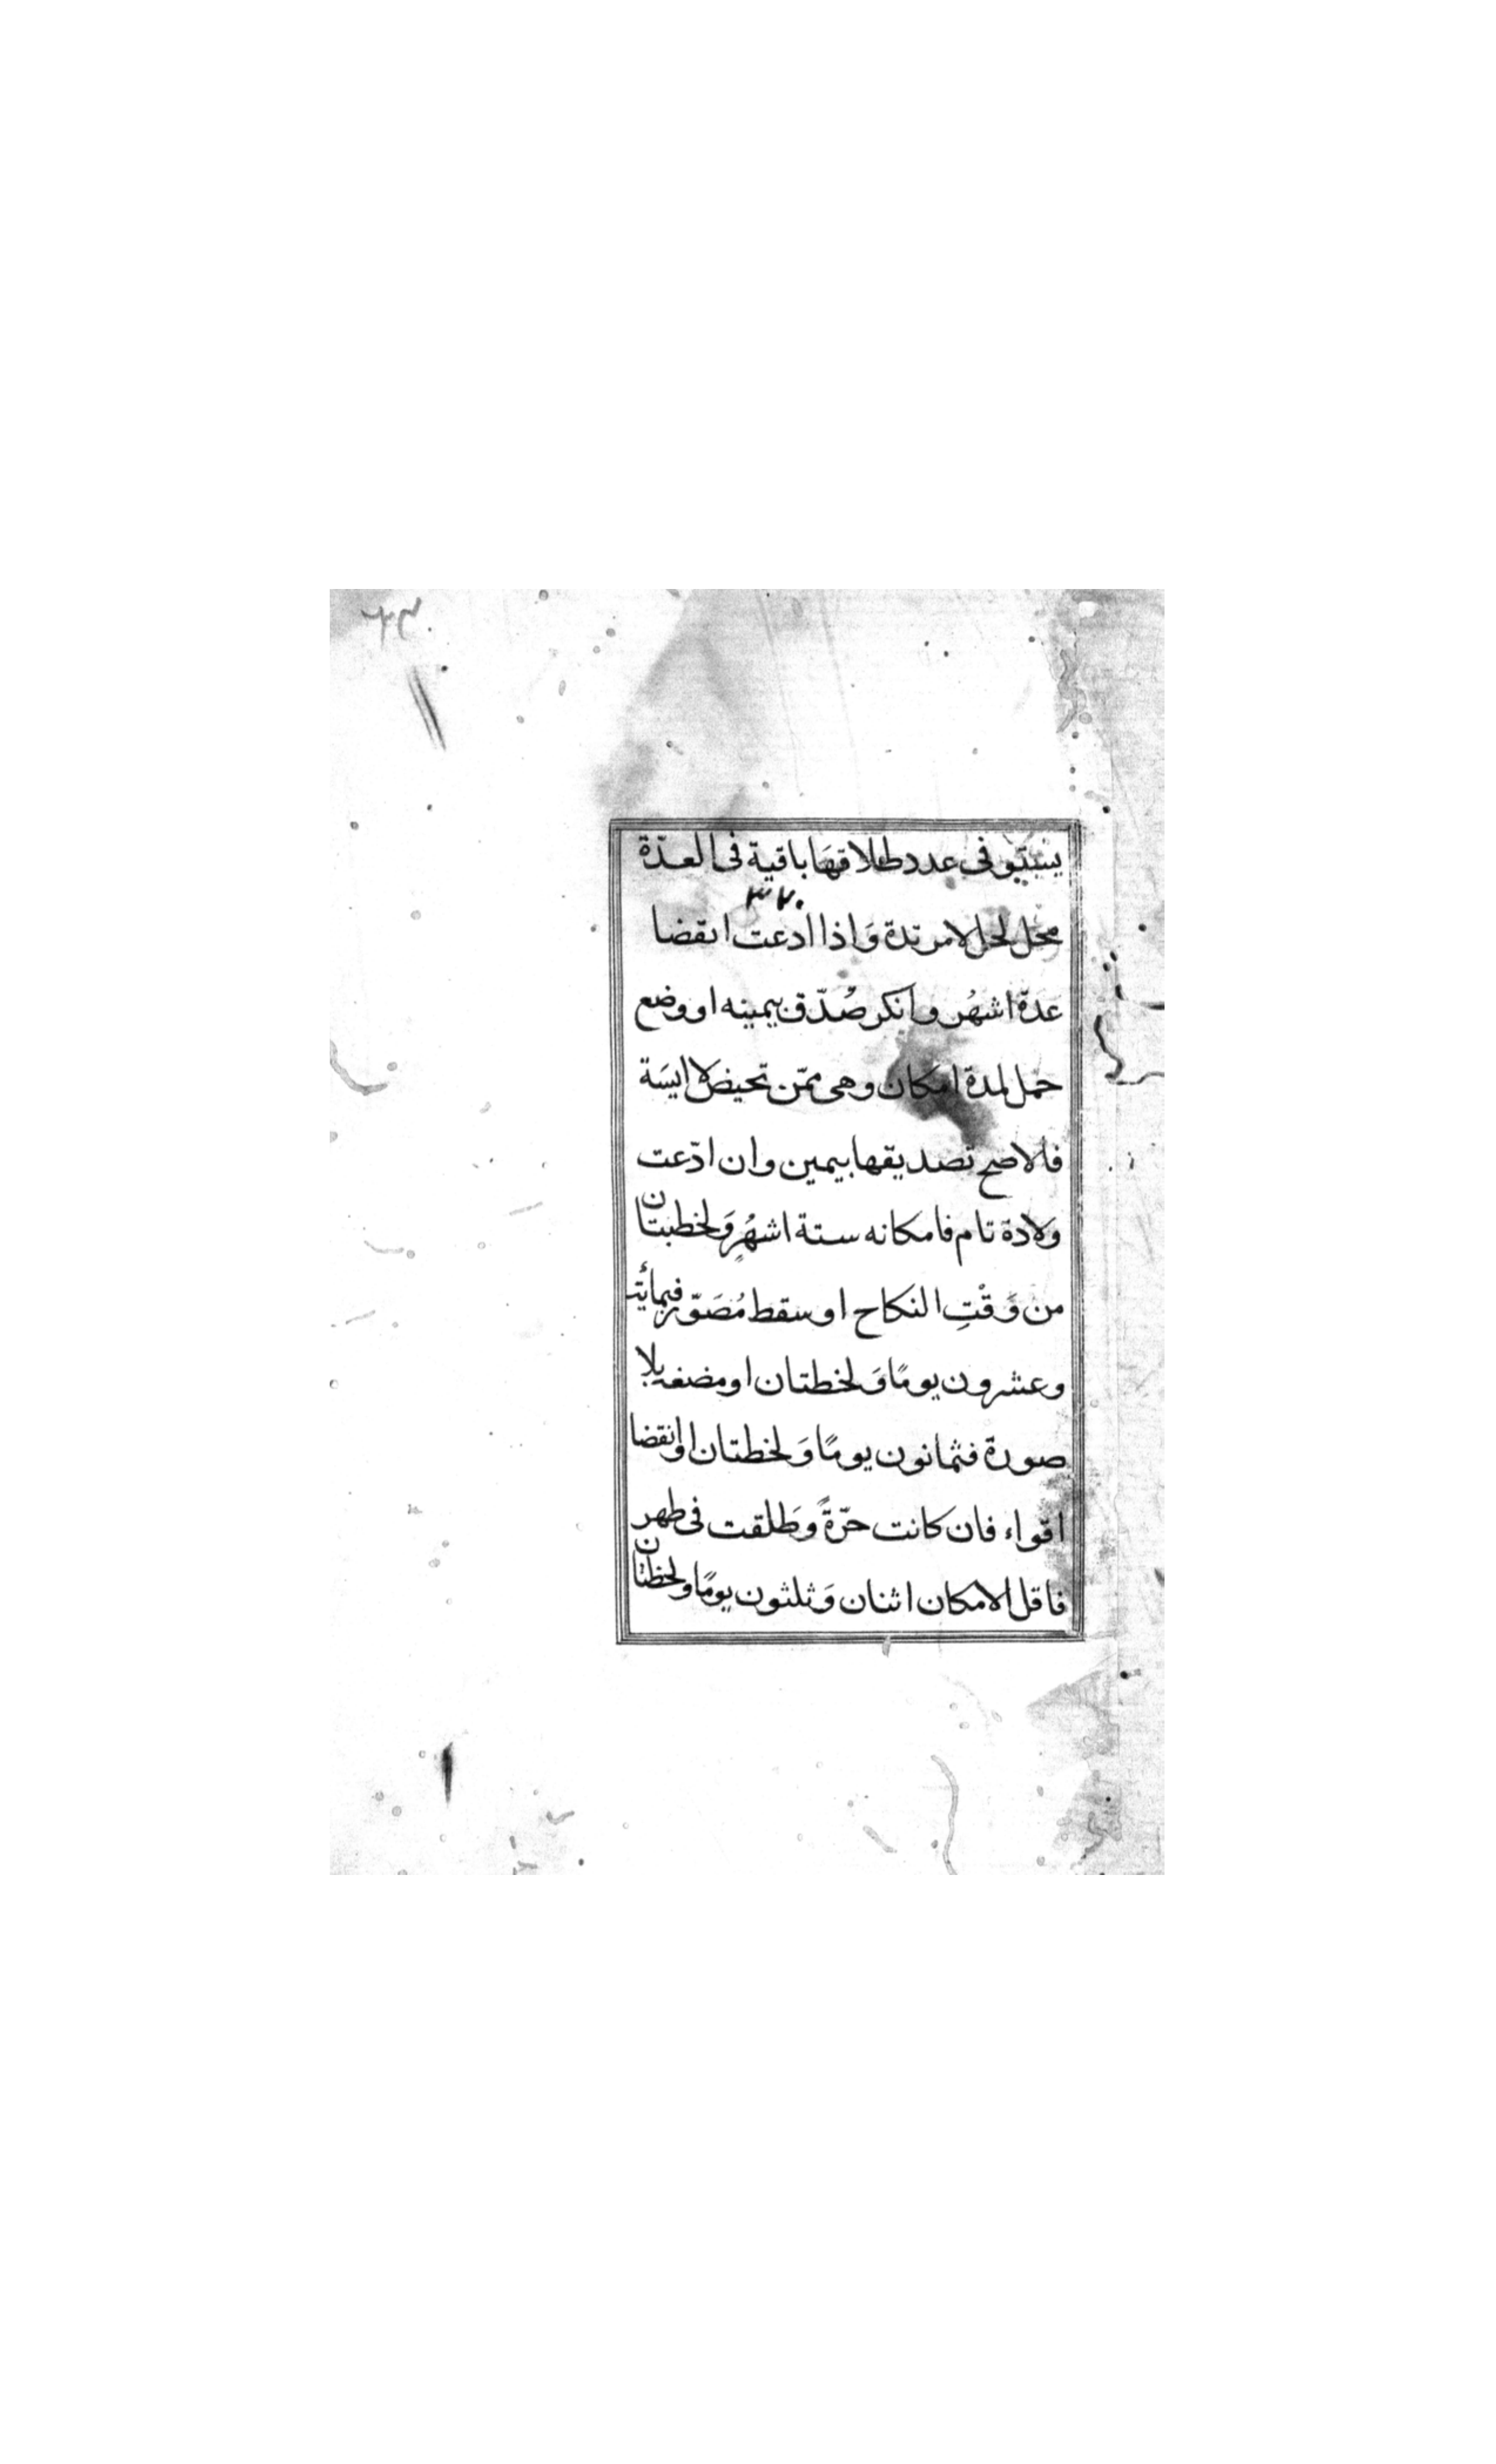 يستوفى عدد طلاقها باقية فى العدّة
٣٧٠
محل لحل لا مرتدة وَاذا ادعت انقضا
عدة اشهُر وانكر صُدّق بيمينه او وضع
حمل لمدة امكان وهى ممّن تحيض لا ايسَة
فالاصح تصديقها بيمين وان ادّعت
ولادة تام فامكانه ستة اشهُرٍ وَلحظتان
من وَقْتِ النكاح او سقط مُصَوّر فمائة
وعشرون يومًا وَلحظتان او مضغة بلا
صورة فثمانون يومًا وَلحظتان او انقضا
اقراء فان كانت حرّةً وَطلقت فى طهر
فاقل الامكان اثنان وَثلثون يومًا ولحظتان